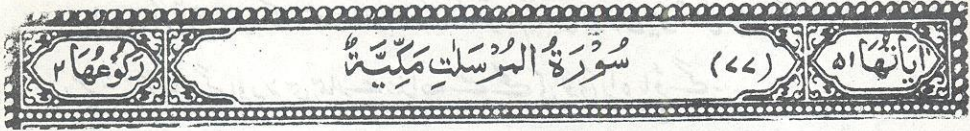 اٰيَاتُهَا ۵۱ (۷۷) سُوْرَةُ الْمُرْسَلٰتِ مَكِّيَّةٌ رُكُوْعُهَا ۲